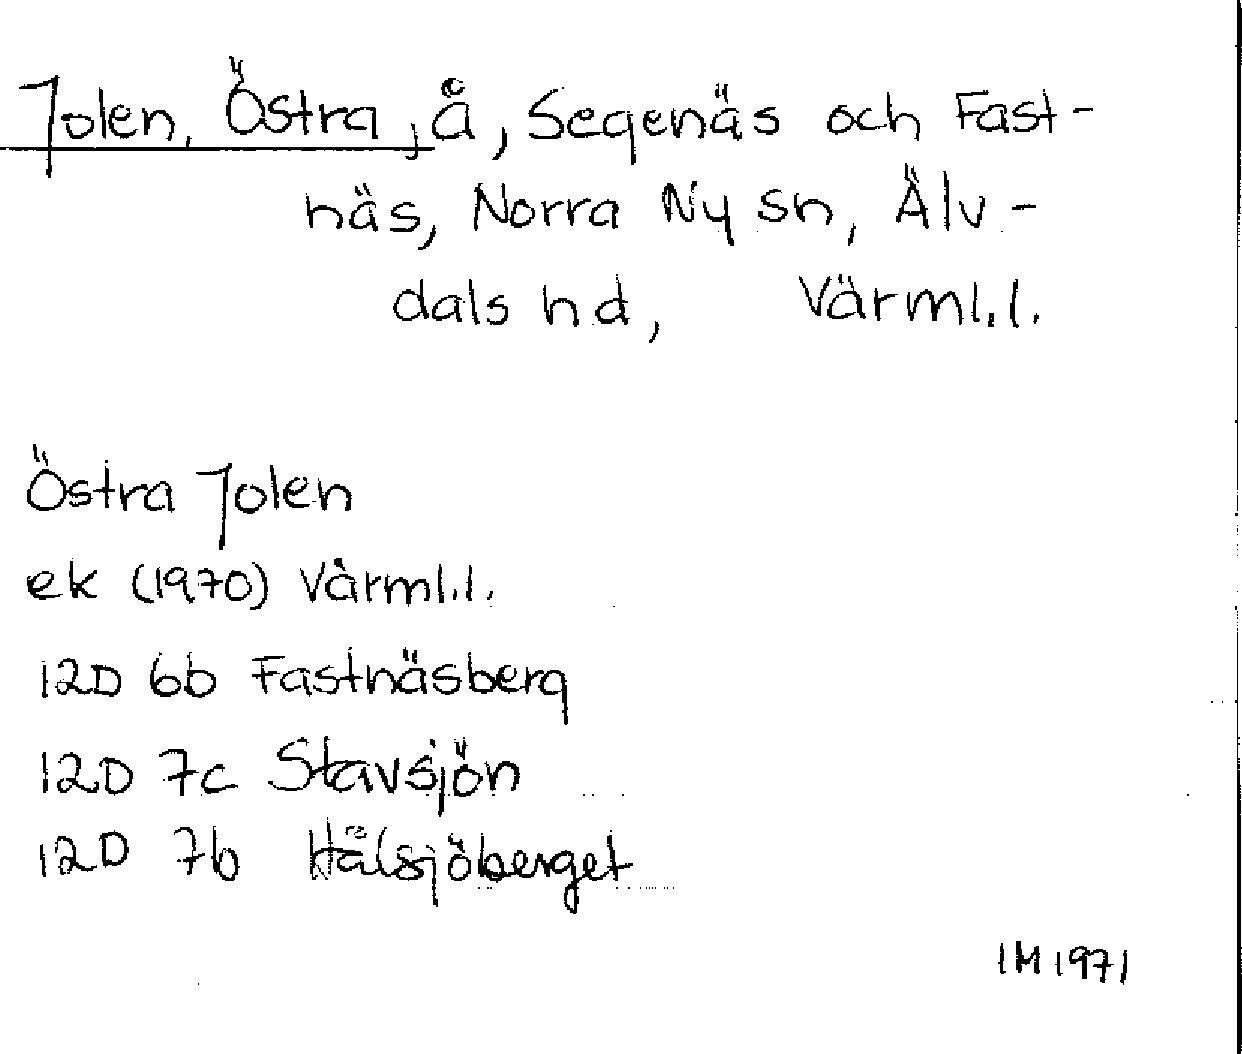 Jolen, Östra, å, Segenäs och Fast-
näs, Norra Ny sn, Älv-
dals hd, Värml.l.
Östra Jolen
ek (1970) Värml.l.
12D 6b Fastnäsberg
12D 7c Stavsjön
12D 7b Hålsjöberget
IM 1971